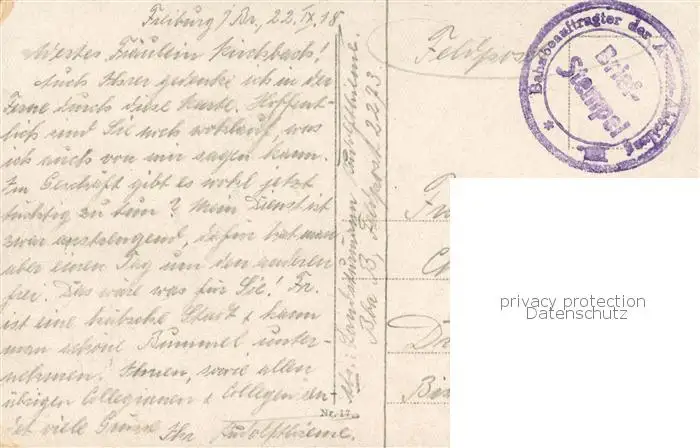 Freiburg i/Br., 22.IX.18
Wertes Fräulein Kirschbach!
Auch Ihrer gedenke ich in der
Ferne durch diese Karte. Hoffent-
lich sind Sie noch wohlauf, was
ich auch von mir sagen kann.
Im Geschäft gibt es wohl jetzt
tüchtig zu tun? Mein Dienst ist
zwar anstrengend, dafür hat man
aber einen Tag um den anderen
frei. Das wäre was für Sie! Fr.
ist eine hübsche Stadt & kann
man schöne Bummel unter-
nehmen. Ihnen, sowie allen
übrigen Collegianen & Collegen sen-
det viele Grüsse Ihr Rudolf
Abs.: Landsturmmann Rudolf
Feldpost 2273.
Nr. 17
Feldpos
* Bahnbeauftragter der
Brief-
Stempel
privacy protection
Datenschutz